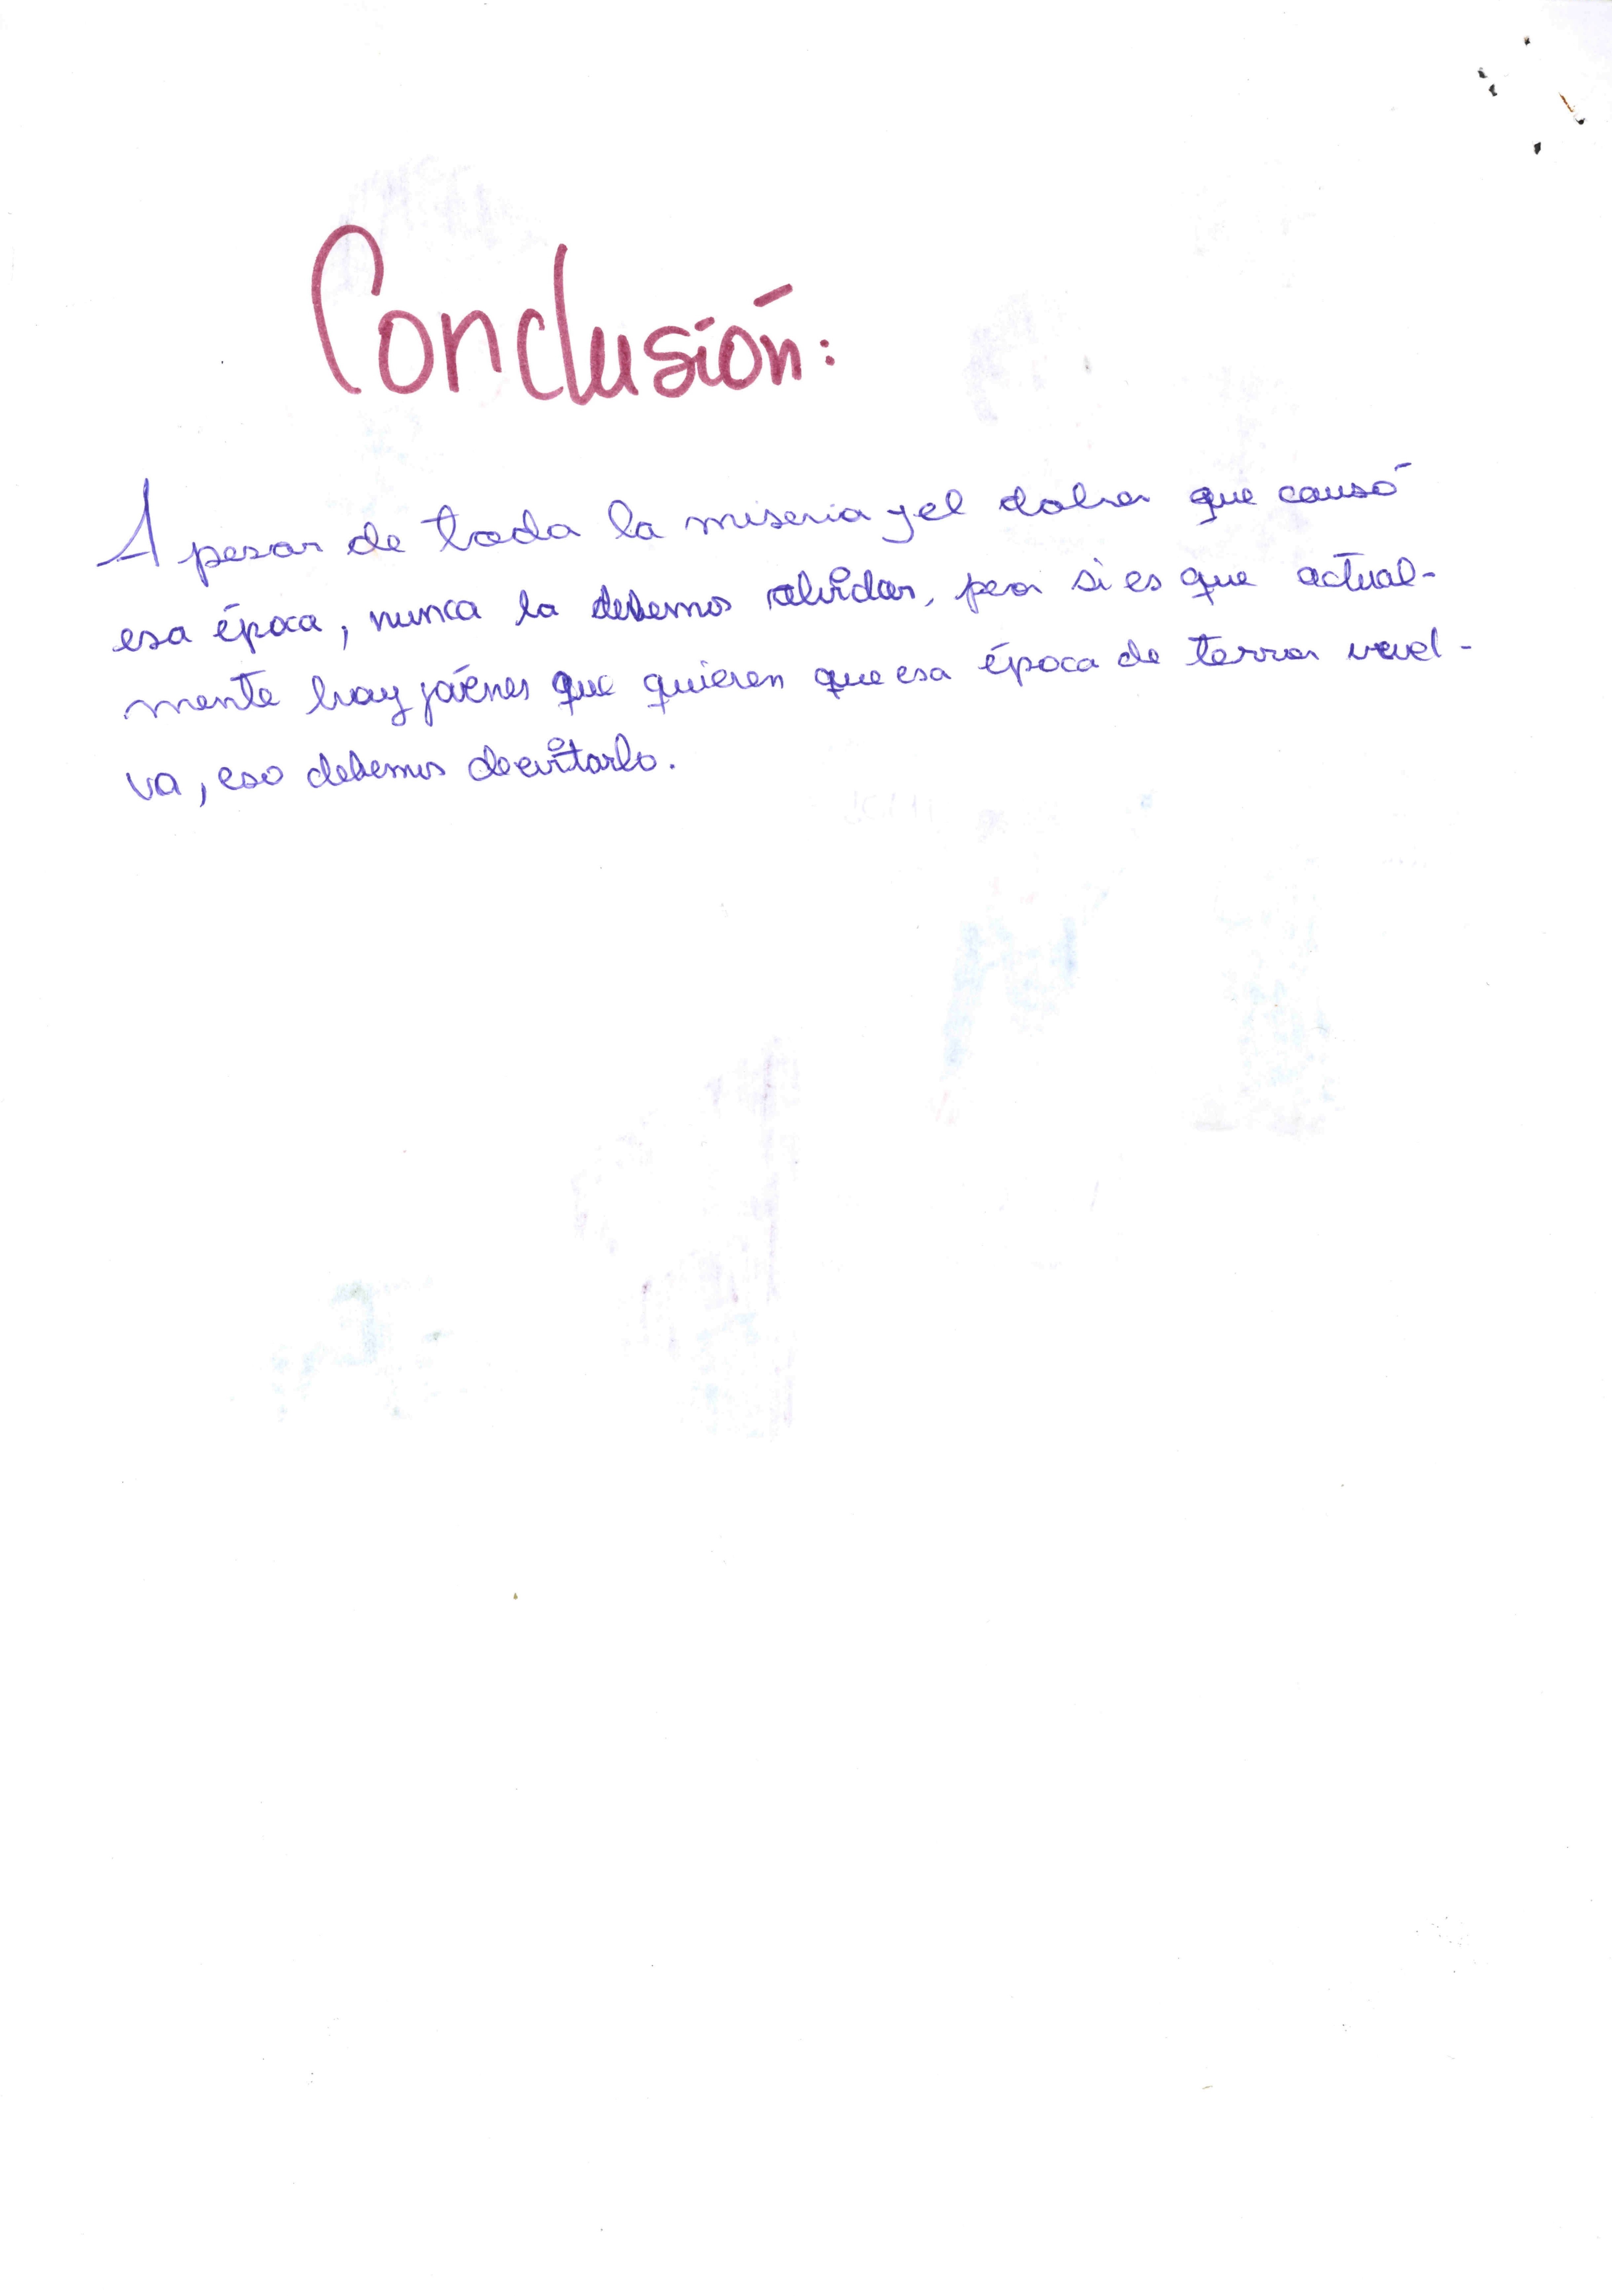 Conclusión:
A pesar de toda la miseria y el dolor que causó
esa época, nunca la debemos olvidar, pero si es que actual-
mente hay jóvenes que quieren que esa época de terror vuel-
va, eso debemos de evitarlo.